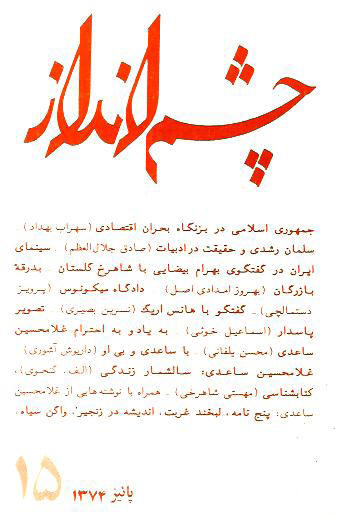 چشم‌انداز
جمهوری اسلامی در بزنگاه بحران اقتصادی (سهراب بهداد) ـ
سلمان رشدی و حقیقت در ادبیات (صادق جلال‌العظم) ـ سینمای
ایران در گفتگوی بهرام بیضایی با شاهرخ گلستان ـ بدرقهٔ
بازرگان (بهروز امدادی اصل) ـ دادگاه میکونوس (پرویز
دستمالچی) ـ گفتگو با هانس اریک (نسرین بصیری) ـ تصویر
پاسدار (اسماعیل خوئی) ـ به یاد و به احترام غلامحسین
ساعدی (محسن یلفانی) ـ با ساعدی و بی او (داریوش آشوری)
غلامحسین ساعدی: سالشمار زندگی (الف. کنجوی)،
کتابشناسی (مهستی شاهرخی) ـ همراه با نوشته‌هایی از غلامحسین
ساعدی: پنج نامه، لبخند غربت، اندیشه در زنجیر، واگن سیاه،
۱۵
پائیز ۱۳۷۴